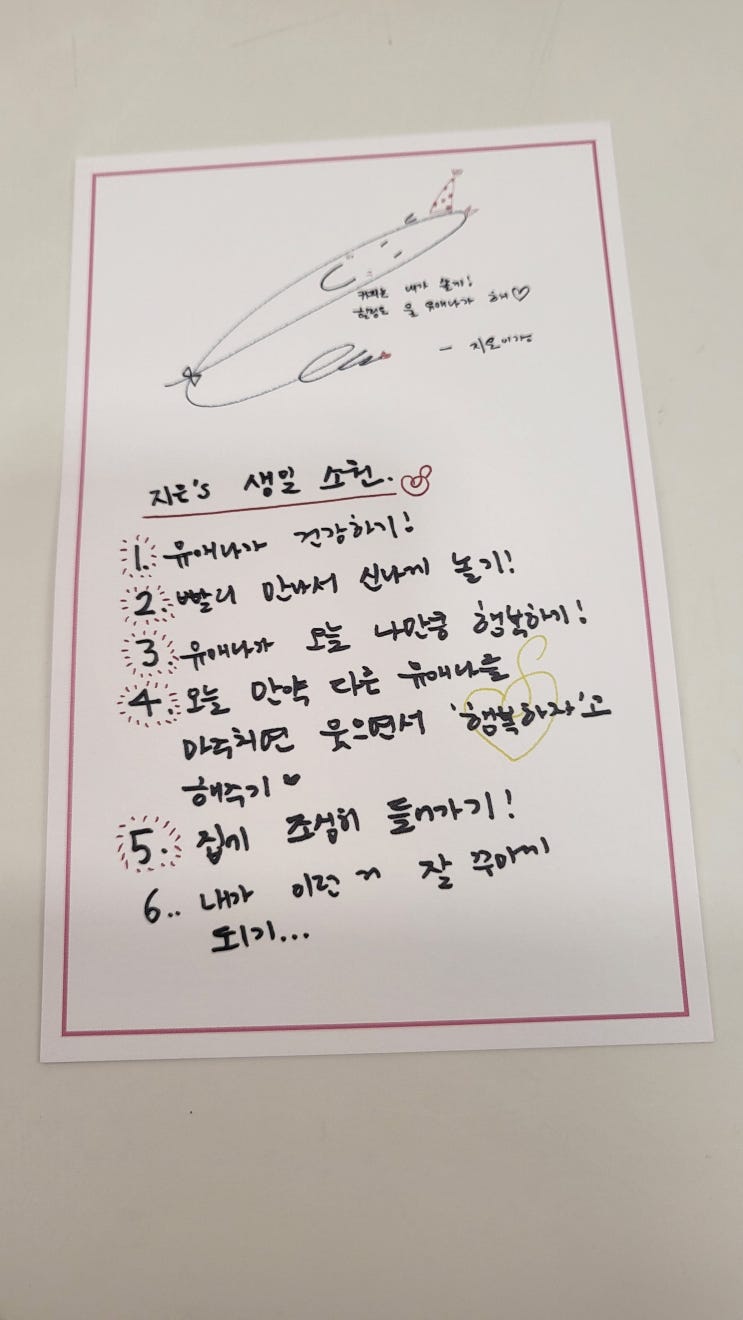 커피는 내가 쏠게!
할 유애나가 해♡
지은's 생일 소원.
1. 유애나가 건강하기!
2. 빨리 만나서 신나게 놀기!
3. 유애나가 오늘 나만큼 행복하기!
4. 오늘 만약 다른 유애나를
마주치면 웃으면서 '행복하자'고
해주기♥
5. 집에 조심히 들어가기!
6.. 내가 이런 거 잘 꾸미게
되기...